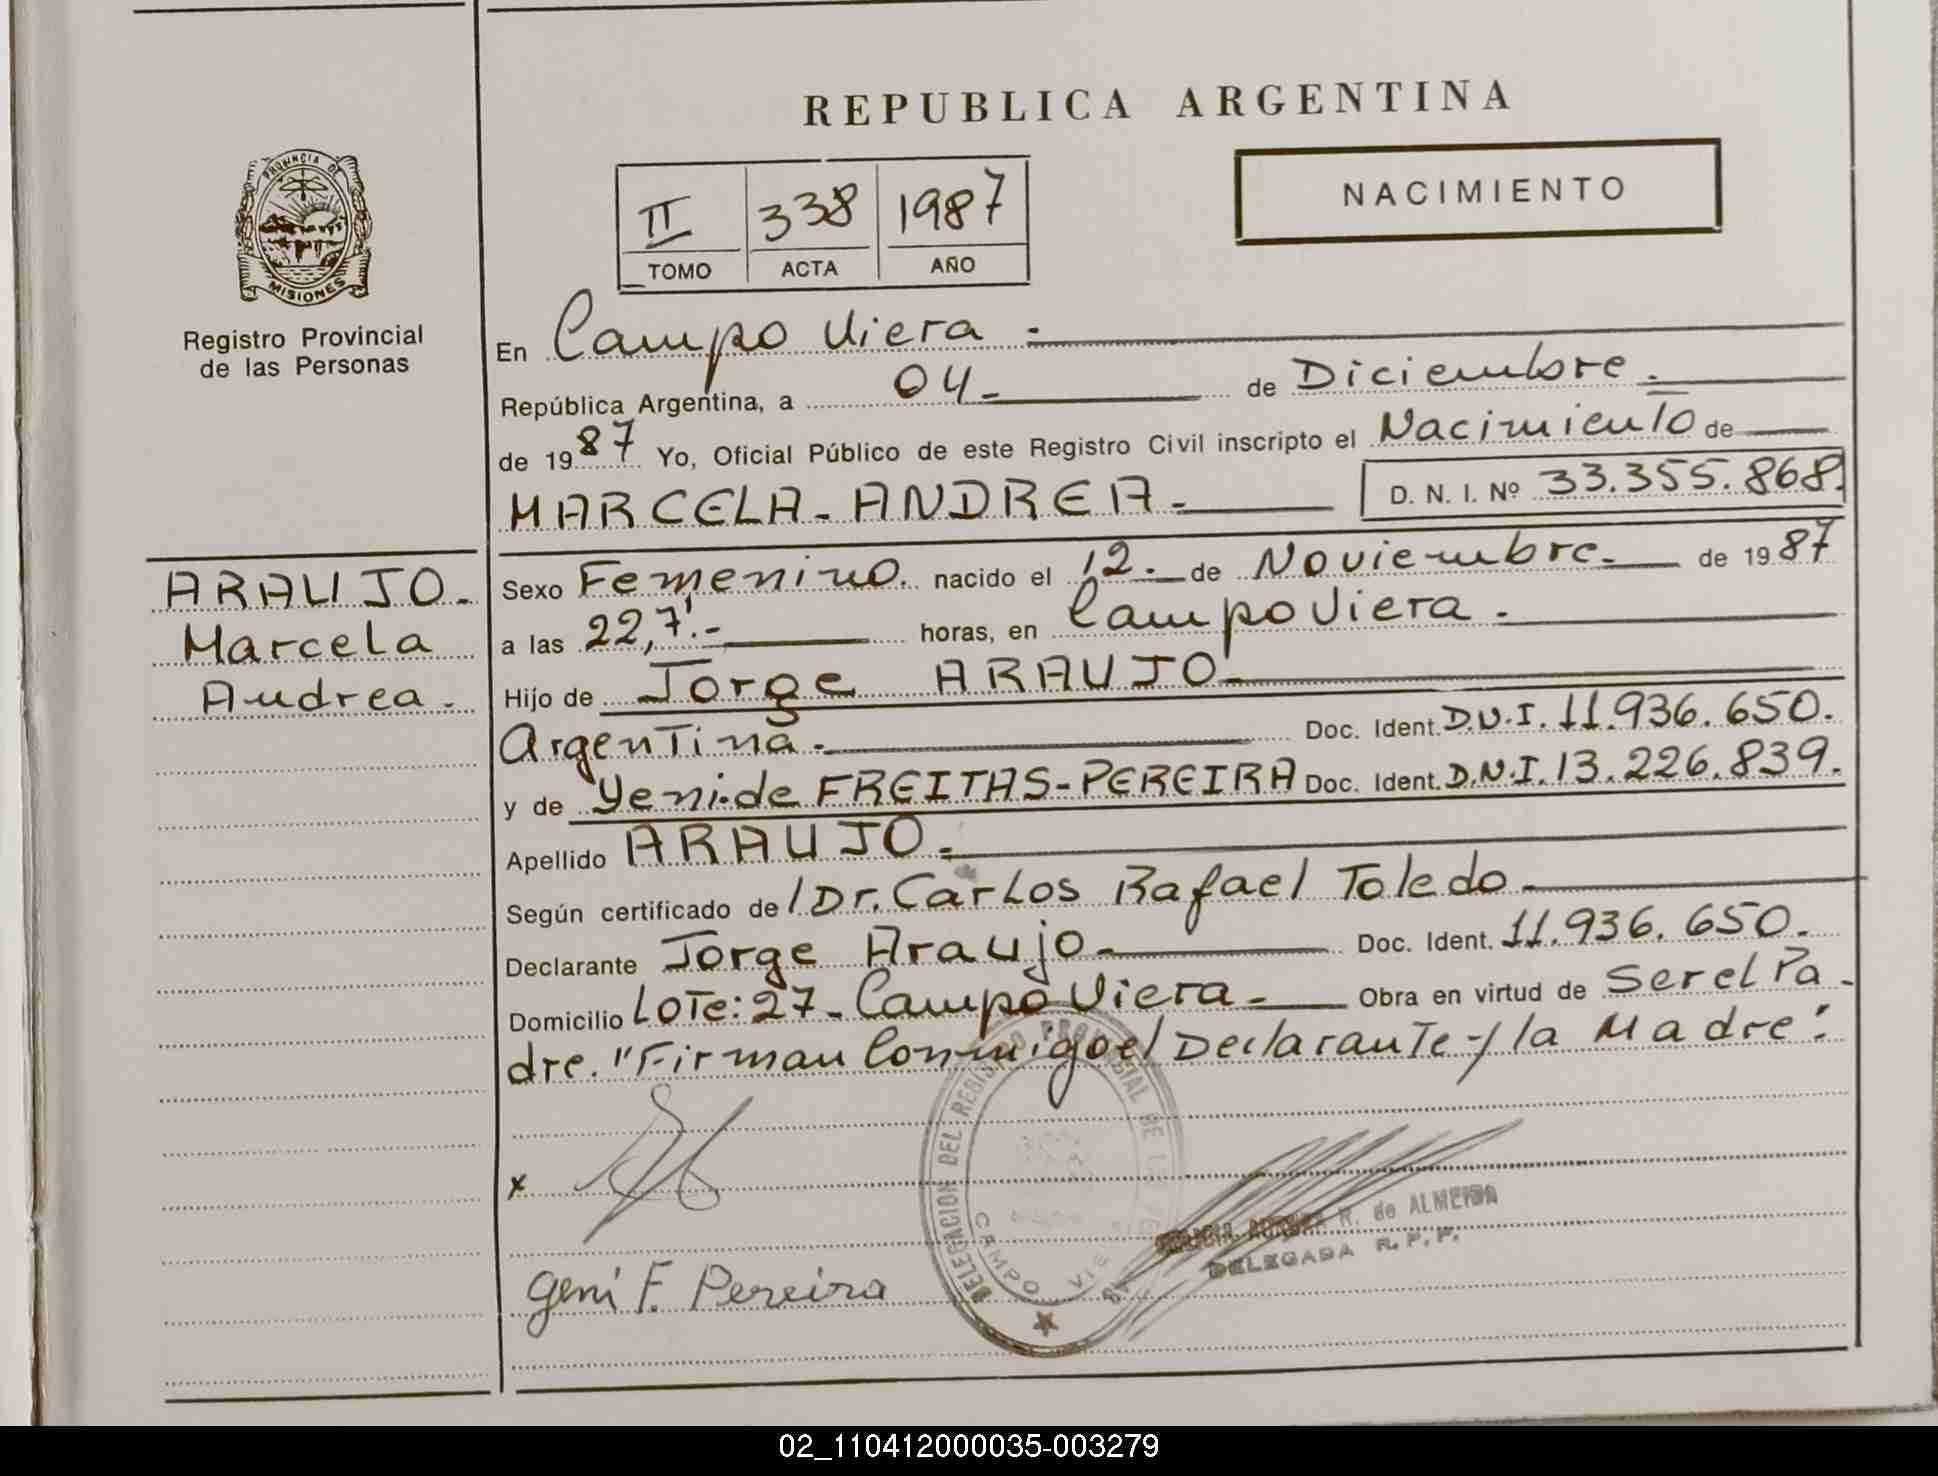 REPUBLICA ARGENTINA
NACIMIENTO
II 338 1987
TOMO ACTA AÑO
PROVINCIA DE
MISIONES
Registro Provincial
de las Personas
En Campo Viera.-
República Argentina, a 04.- de Diciembre.-
de 1987 Yo, Oficial Público de este Registro Civil inscripto el Nacimiento de
MARCELA-ANDREA.- D. N. I. Nº 33.355.868.
ARAUJO.
Marcela
Andrea.
Sexo Femenino. nacido el 12.- de Noviembre.- de 1987
a las 22,7'.- horas, en Campo Viera.-
Hijo de Jorge ARAUJO.-
Argentina.- Doc. Ident. D.N.I. 11.936.650.
y de Yeni de FREITAS-PEREIRA Doc. Ident. D.N.I. 13.226.839.
Apellido ARAUJO.-
Según certificado de / Dr. Carlos Rafael Toledo.-
Declarante Jorge Araujo.- Doc. Ident. 11.936.650.
Domicilio Lote: 27- Campo Viera.- Obra en virtud de Ser el Pa-
dre. "Firman Conmigo el Declarante y la Madre:
x
Geni F. Pereira
DELEGACION DEL REGISTRO PROVINCIAL DE
CAMPO VIERA
R. de ALMEIDA
DELEGADA R. P. P.
02_110412000035-003279